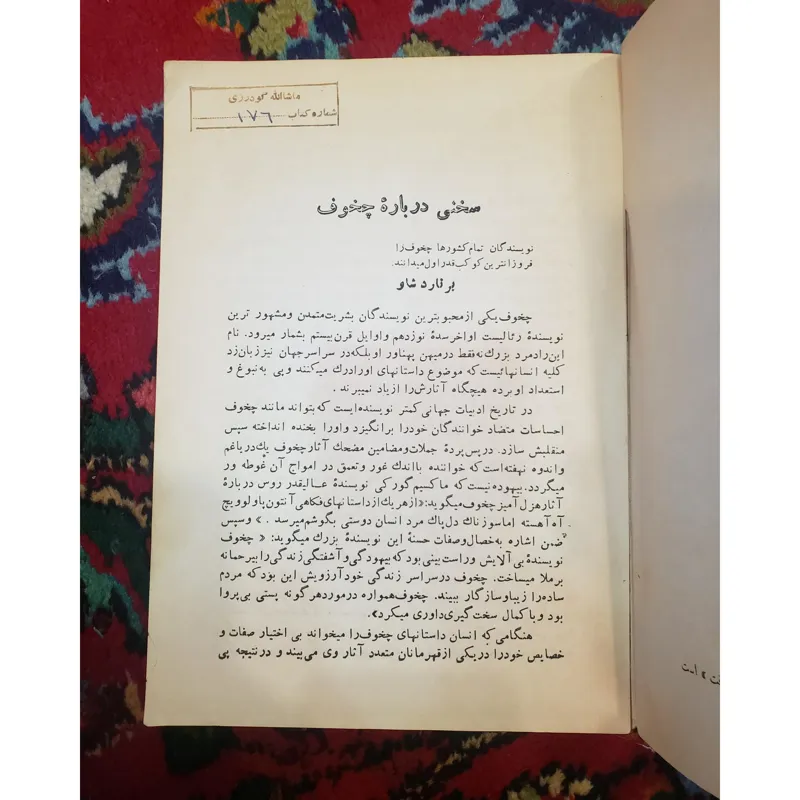 ماشاالله گودرزی
شماره کتاب ۱۷۶
سخنی دربارهٔ چخوف
نویسندگان تمام کشورها چخوف را
فروزانترین کوکب قدر اول میدانند.
برنارد شاو
چخوف یکی از محبوبترین نویسندگان بشریت متمدن و مشهور ترین
نویسندهٔ رئالیست اواخر سدهٔ نوزدهم و اوایل قرن بیستم بشمار میرود. نام
این رادمرد بزرك نه فقط در میهن پهناور او بلکه در سراسر جهان نیز زبان زد
کلیه انسانهائیست که موضوع داستانهای اورا درك میکنند و پی به نبوغ و
استعداد او برده هیچگاه آثارش را از یاد نمیبرند .
در تاریخ ادبیات جهانی کمتر نویسنده ایست که بتواند مانند چخوف
احساسات متضاد خوانندگان خودرا برانگیزد و اورا بخنده انداخته سپس
منقلبش سازد. در پس پردهٔ جملات و مضامین مضحك آثار چخوف یك دریا غم
و اندوه نهفته است که خواننده با اندك غور و تعمق در امواج آن غوطه ور
میگردد. بیهوده نیست که ماکسیم گورکی نویسندهٔ عالیقدر روس دربارهٔ
آثار هزل آمیز چخوف میگوید: «از هریك از داستانهای فکاهی آنتون پاولوویچ
آه آهسته اما سوزناك دل پاك مرد انسان دوستی بگوشم میرسد . » و سپس
ضمن اشاره به خصال و صفات حسنهٔ این نویسندهٔ بزرك میگوید: « چخوف
نویسندهٔ بی آلایش و راست بینی بود که بیهودگی و آشفتگی زندگی را بیرحمانه
برملا میساخت. چخوف در سراسر زندگی خود آرزویش این بود که مردم
ساده را زیبا و سازگار ببیند. چخوف همواره در مورد هر گونه پستی بی پروا
بود و با کمال سخت گیری داوری میکرد».
هنگامی که انسان داستانهای چخوف را میخواند بی اختیار صفات و
خصایص خودرا در یکی از قهرمانان متعدد آثار وی می بیند و در نتیجه پی
» است